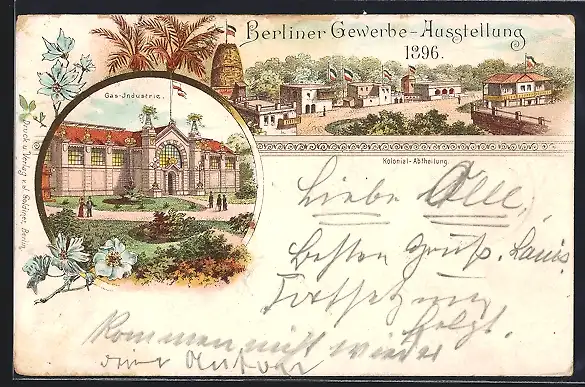 Berliner Gewerbe-Ausstellung
1896.
Gas-Industrie.
Kolonial-Abtheilung.
Druck u. Verlag v. J. Goldiner, Berlin.
Liebe
Besten Gruß. Louis
Fortsetzung
folgt.
Kommen nicht wieder